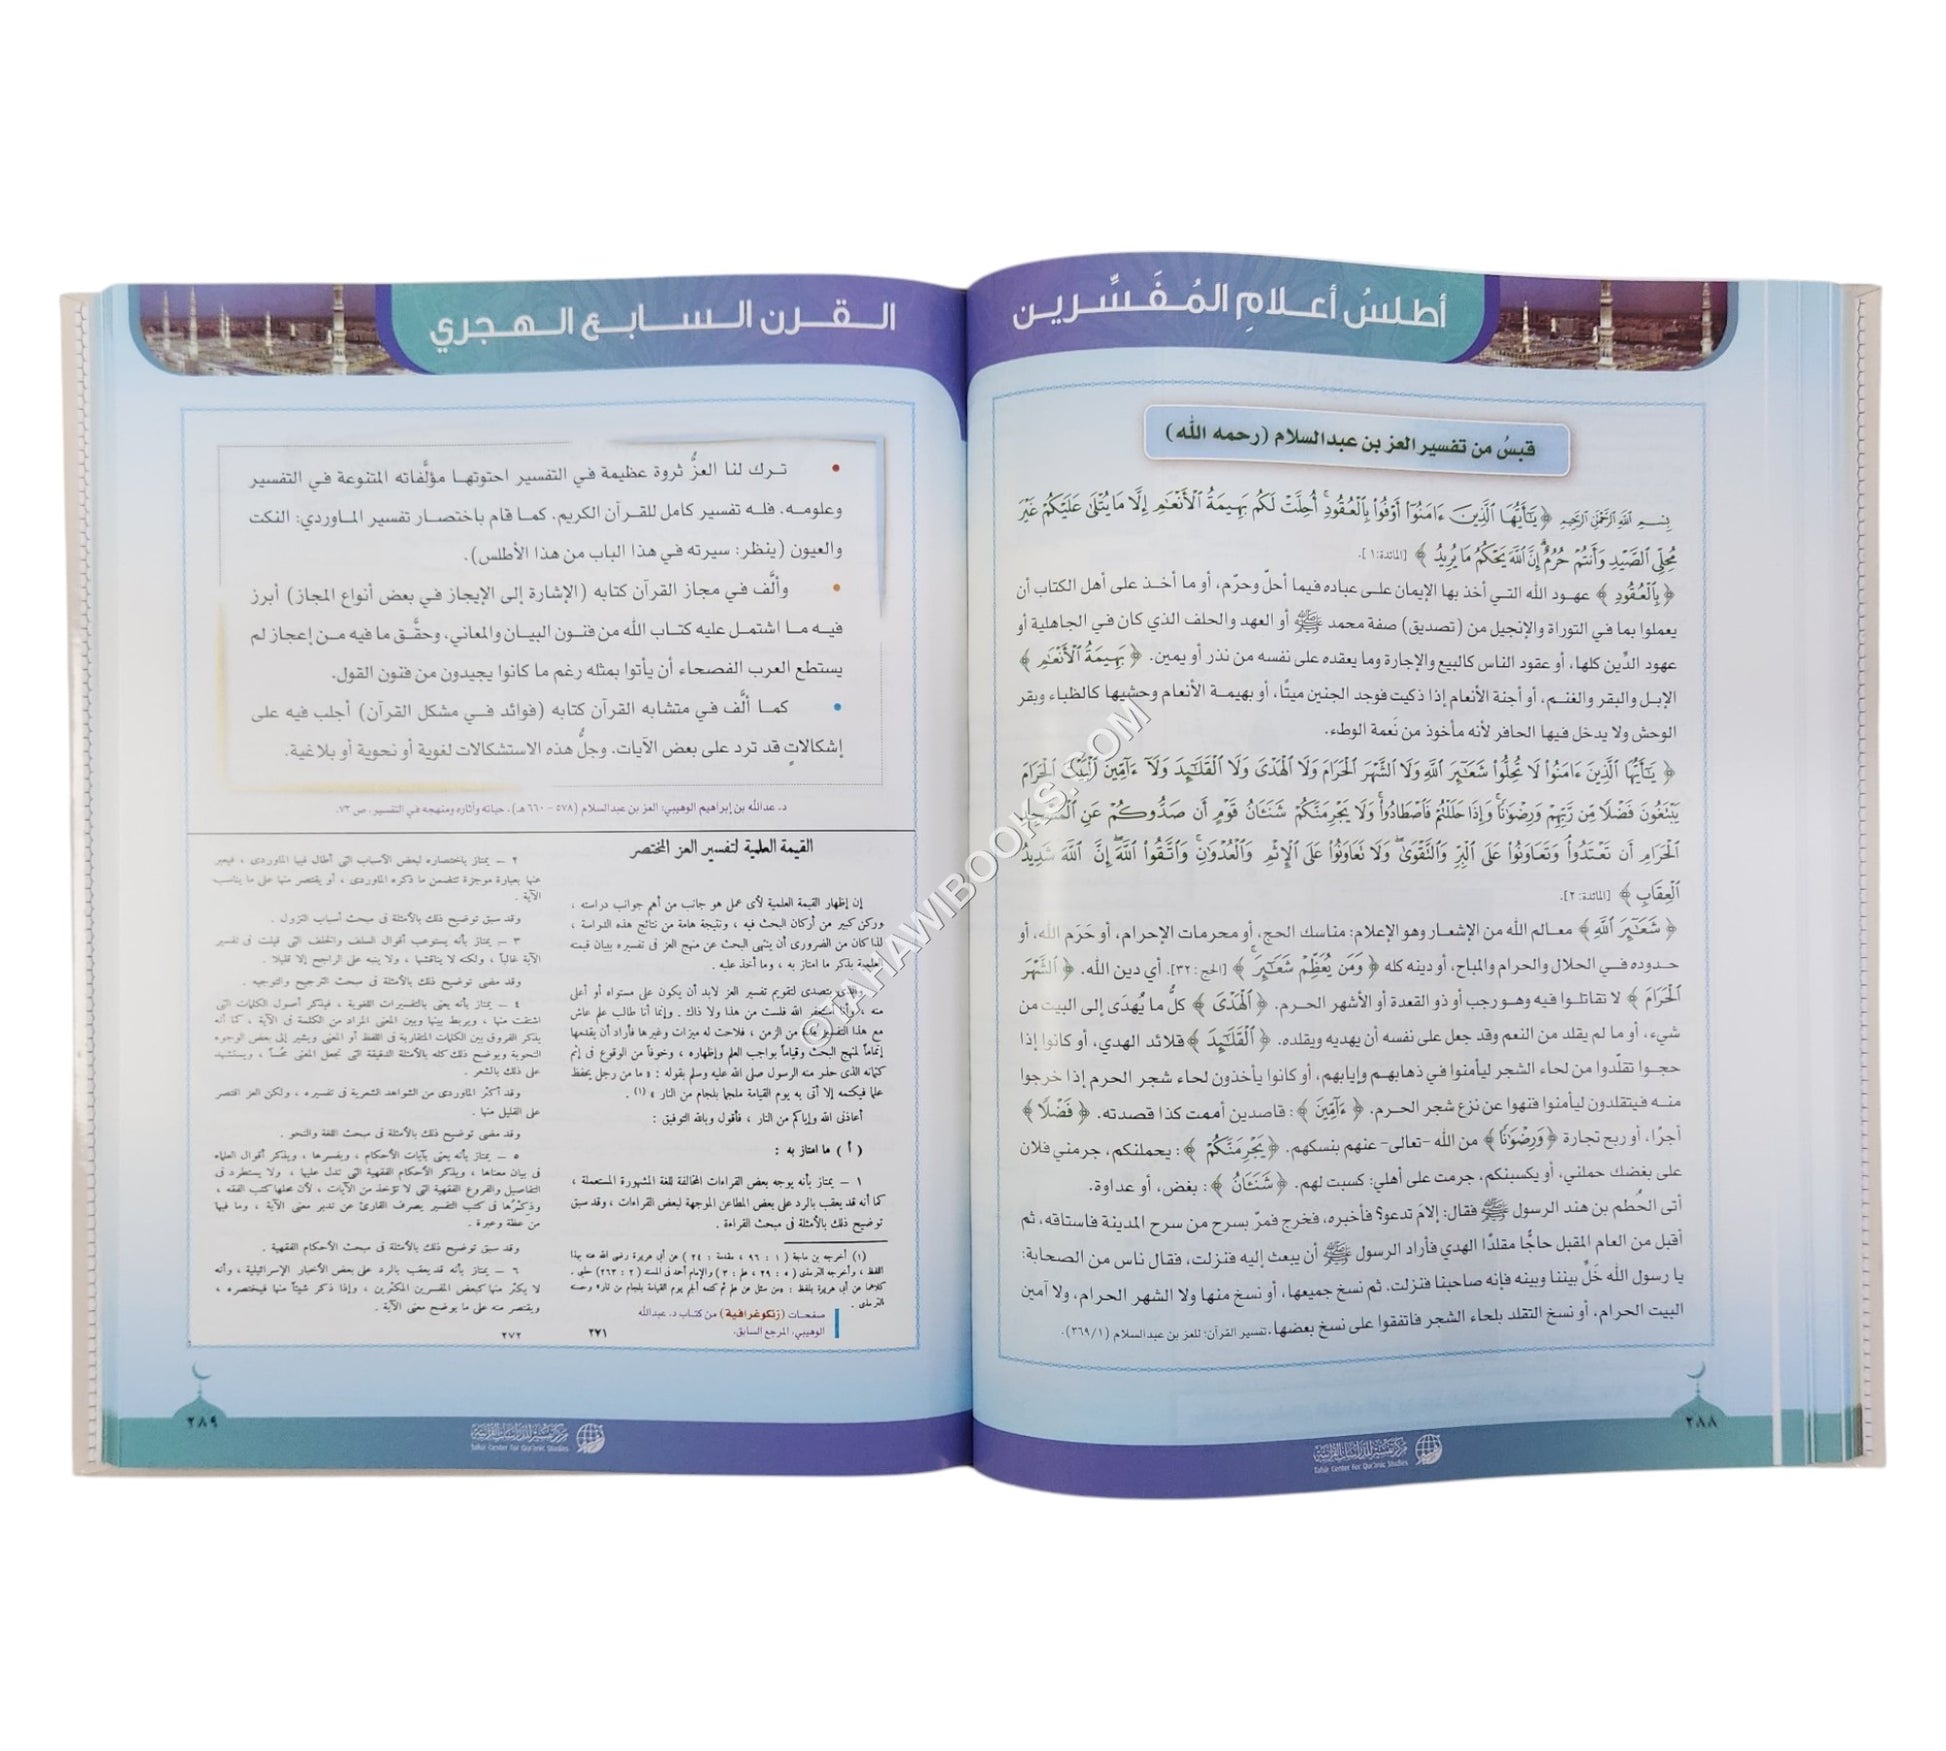 أطلسُ أعلامِ المُفَسِّرين
قبسُ من تفسير العز بن عبدالسلام (رحمه الله)
بِسْمِ اللَّهِ الرَّحْمَٰنِ الرَّحِيمِ ﴿ يَٰٓأَيُّهَا ٱلَّذِينَ ءَامَنُوٓا۟ أَوْفُوا۟ بِٱلْعُقُودِ ۚ أُحِلَّتْ لَكُم بَهِيمَةُ ٱلْأَنْعَٰمِ إِلَّا مَا يُتْلَىٰ عَلَيْكُمْ غَيْرَ
مُحِلِّى ٱلصَّيْدِ وَأَنتُمْ حُرُمٌ ۗ إِنَّ ٱللَّهَ يَحْكُمُ مَا يُرِيدُ ﴾ [المائدة: ١].
﴿ بِٱلْعُقُودِ ﴾ عهود الله التي أخذ بها الإيمان على عباده فيما أحلّ وحرّم، أو ما أخذ على أهل الكتاب أن
يعملوا بما في التوراة والإنجيل من (تصديق) صفة محمد ﷺ أو العهد والحلف الذي كان في الجاهلية أو
عهود الدِّين كلها، أو عقود الناس كالبيع والإجارة وما يعقده على نفسه من نذر أو يمين. ﴿ بَهِيمَةُ ٱلْأَنْعَٰمِ ﴾
الإبل والبقر والغنم، أو أجنة الأنعام إذا ذكيت فوجد الجنين ميتًا، أو بهيمة الأنعام وحشيها كالظباء وبقر
الوحش ولا يدخل فيها الحافر لأنه مأخوذ من نَعمة الوطء.
﴿ يَٰٓأَيُّهَا ٱلَّذِينَ ءَامَنُوا۟ لَا تُحِلُّوا۟ شَعَٰٓئِرَ ٱللَّهِ وَلَا ٱلشَّهْرَ ٱلْحَرَامَ وَلَا ٱلْهَدْىَ وَلَا ٱلْقَلَٰٓئِدَ وَلَآ ءَآمِّينَ ٱلْبَيْتَ ٱلْحَرَامَ
يَبْتَغُونَ فَضْلًا مِّن رَّبِّهِمْ وَرِضْوَٰنًا ۚ وَإِذَا حَلَلْتُمْ فَٱصْطَادُوا۟ ۚ وَلَا يَجْرِمَنَّكُمْ شَنَـَٔانُ قَوْمٍ أَن صَدُّوكُمْ عَنِ ٱلْمَسْجِدِ
ٱلْحَرَامِ أَن تَعْتَدُوا۟ ۘ وَتَعَاوَنُوا۟ عَلَى ٱلْبِرِّ وَٱلتَّقْوَىٰ ۖ وَلَا تَعَاوَنُوا۟ عَلَى ٱلْإِثْمِ وَٱلْعُدْوَٰنِ ۚ وَٱتَّقُوا۟ ٱللَّهَ ۖ إِنَّ ٱللَّهَ شَدِيدُ
ٱلْعِقَابِ ﴾ [المائدة: ٢].
﴿ شَعَٰٓئِرَ ٱللَّهِ ﴾ معالم الله من الإشعار وهو الإعلام: مناسك الحج، أو محرمات الإحرام، أو حَرَم الله، أو
حدوده في الحلال والحرام والمباح، أو دينه كله ﴿ وَمَن يُعَظِّمْ شَعَٰٓئِرَ ﴾ [الحج: ٣٢]. أي دين الله. ﴿ ٱلشَّهْرَ
ٱلْحَرَامَ ﴾ لا تقاتلوا فيه وهو رجب أو ذو القعدة أو الأشهر الحرم. ﴿ ٱلْهَدْىَ ﴾ كلُّ ما يُهدَى إلى البيت من
شيء، أو ما لم يقلد من النعم وقد جعل على نفسه أن يهديه ويقلده. ﴿ ٱلْقَلَٰٓئِدَ ﴾ قلائد الهدي، أو كانوا إذا
حجوا تقلّدوا من لحاء الشجر ليأمنوا في ذهابهم وإيابهم، أو كانوا يأخذون لحاء شجر الحرم إذا خرجوا
منه فيتقلدون ليأمنوا فنهوا عن نزع شجر الحرم. ﴿ ءَآمِّينَ ﴾: قاصدين أممت كذا قصدته. ﴿ فَضْلًا ﴾
أجرًا، أو ربح تجارة ﴿ وَرِضْوَٰنًا ﴾ من الله -تعالى- عنهم بنسكهم. ﴿ يَجْرِمَنَّكُمْ ﴾: يحملنكم، جرمني فلان
على بغضك حملني، أو يكسبنكم، جرمت على أهلي: كسبت لهم. ﴿ شَنَـَٔانُ ﴾: بغض، أو عداوة.
أتى الحُطم بن هند الرسول ﷺ فقال: إلامَ تدعو؟ فأخبره، فخرج فمرّ بسرح من سرح المدينة فاستاقه، ثم
أقبل من العام المقبل حاجًّا مقلدًا الهدي فأراد الرسول ﷺ أن يبعث إليه فنزلت، فقال ناس من الصحابة:
يا رسول الله خَلِّ بيننا وبينه فإنه صاحبنا فنزلت. ثم نسخ جميعها، أو نسخ منها ولا الشهر الحرام، ولا آمين
البيت الحرام، أو نسخ التقلد بلحاء الشجر فاتفقوا على نسخ بعضها. تفسير القرآن؛ للعز بن عبدالسلام (٣٦٩/١).
٢٨٨
مركز تفسير للدراسات القرآنية
Tafsir Center For Qur'anic Studies
القرن السابع الهجري
• ترك لنا العزُّ ثروة عظيمة في التفسير احتوتها مؤلَّفاته المتنوعة في التفسير
وعلومه. فله تفسير كامل للقرآن الكريم. كما قام باختصار تفسير الماوردي: النكت
والعيون (ينظر: سيرته في هذا الباب من هذا الأطلس).
• وألَّف في مجاز القرآن كتابه (الإشارة إلى الإيجاز في بعض أنواع المجاز) أبرز
فيه ما اشتمل عليه كتاب الله من فنون البيان والمعاني، وحقَّق ما فيه من إعجاز لم
يستطع العرب الفصحاء أن يأتوا بمثله رغم ما كانوا يجيدون من فنون القول.
• كما ألَّف في متشابه القرآن كتابه (فوائد في مشكل القرآن) أجلب فيه على
إشكالاتٍ قد ترد على بعض الآيات. وجلُّ هذه الاستشكالات لغوية أو نحوية أو بلاغية.
د. عدالله بن إبراهيم الوهيبي: العز بن عبدالسلام (٥٧٨ – ٦٦٠ هـ). حياته وآثاره ومنهجه في التفسير. ص ٧٣.
القيمة العلمية لتفسير العز المختصر
إن إظهار القيمة العلمية لأى عمل هو جانب من أهم جوانب دراسته ،
وركن كبير من أركان البحث فيه ، ونتيجة هامة من نتائج هذه الدراسة ،
لذا كان من الضرورى أن ينتهى البحث عن منهج العز فى تفسيره ببيان قيمته
العلمية بذكر ما امتاز به ، وما أخذ عليه .
والذى يتصدى لتقويم تفسير العز لابد أن يكون على مستواه أو أعلى
منه ، وأنا أستغفر الله فلست من هذا ولا ذاك . وإنما أنا طالب علم عاش
مع هذا التفسير مدة من الزمن ، فلاحت له ميزات وغيرها فأراد أن يقدمها
إتماماً لمنهج البحث وقياماً بواجب العلم وإظهاره ، وخوفاً من الوقوع فى إثم
كتمانه الذى حذر منه الرسول صلى الله عليه وسلم بقوله : « ما من رجل يحفظ
علما فيكتمه إلا أتى به يوم القيامة ملجما بلجام من النار » (١) .
أعاذنى الله وإياكم من النار ، فأقول وبالله التوفيق :
( أ ) ما امتاز به :
١ – يمتاز بأنه يوجه بعض القراءات المخالفة للغة المشهورة المستعملة ،
كما أنه قد يعقب بالرد على بعض المطاعن الموجهة لبعض القراءات ، وقد سبق
توضيح ذلك بالأمثلة فى مبحث القراءة .
(١) أخرجه بن ماجة ( ١ : ٩٦ ، مقدمة : ٢٤ ) عن أبى هريرة رضى الله عنه بهذا
اللفظ ، وأخرجه الترمذى ( ٥ : ٢٩ ، علم : ٣ ) والإمام أحمد فى المسند ( ٢ : ٢٦٣ ) حلبى .
كلاهما عن أبى هريرة بلفظ : « من سئل عن علم ثم كتمه ألجم يوم القيامة بلجام من نار » وحسنه
الترمذى .
صفحات (زنكوغرافية) من كتاب د. عبدالله
الوهيبي، المرجع السابق.
٢٧١
٢ – يمتاز باختصاره لبعض الأسباب التى أطال فيها الماوردى ، فيعبر
عنها بعبارة موجزة تتضمن ما ذكره الماوردى ، أو يقتصر منها على ما يناسب
الآية .
وقد سبق توضيح ذلك بالأمثلة فى مبحث أسباب النزول .
٣ – يمتاز بأنه يستوعب أقوال السلف والخلف التى قيلت فى تفسير
الآية غالباً ، ولكنه لا يناقشها ، ولا ينبه على الراجح إلا قليلا .
وقد مضى توضيح ذلك بالأمثلة فى مبحث الترجيح والتوجيه .
٤ – يمتاز بأنه يعنى بالتفسيرات اللغوية ، فيذكر أصول الكلمات التى
اشتقت منها ، ويربط بينها وبين المعنى المراد من الكلمة فى الآية ، كما أنه
يذكر الفروق بين الكلمات المتقاربة فى اللفظ أو المعنى ويشير إلى بعض الوجوه
النحوية ويوضح ذلك كله بالأمثلة الدقيقة التى تجعل المعنى محسًّا ، ويستشهد
على ذلك بالشعر .
وقد أكثر الماوردى من الشواهد الشعرية فى تفسيره ، ولكن العز اقتصر
على القليل منها .
وقد مضى توضيح ذلك بالأمثلة فى مبحث اللغة والنحو .
٥ – يمتاز بأنه يعنى بآيات الأحكام ، ويفسرها ، ويذكر أقوال العلماء
فى بيان معناها ، ويذكر الأحكام الفقهية التى تدل عليها ، ولا يستطرد فى
التفاصيل والفروع الفقهية التى لا تؤخذ من الآيات ، لأن محلها كتب الفقه ،
وذِكْرُها فى كتب التفسير يصرف القارئ عن تدبر معنى الآية ، وما فيها
من عظة وعبرة .
وقد سبق توضيح ذلك بالأمثلة فى مبحث الأحكام الفقهية .
٦ – يمتاز بأنه قد يعقب بالرد على بعض الأخبار الإسرائيلية ، وأنه
لا يكثر منها كبعض المفسرين المكثرين ، وإذا ذكر شيئاً منها فيختصره ،
ويقتصر منه على ما يوضح معنى الآية .
٢٧٢
٢٨٩
مركز تفسير للدراسات القرآنية
Tafsir Center For Qur'anic Studies
©TAHAWIBOOKS.COM